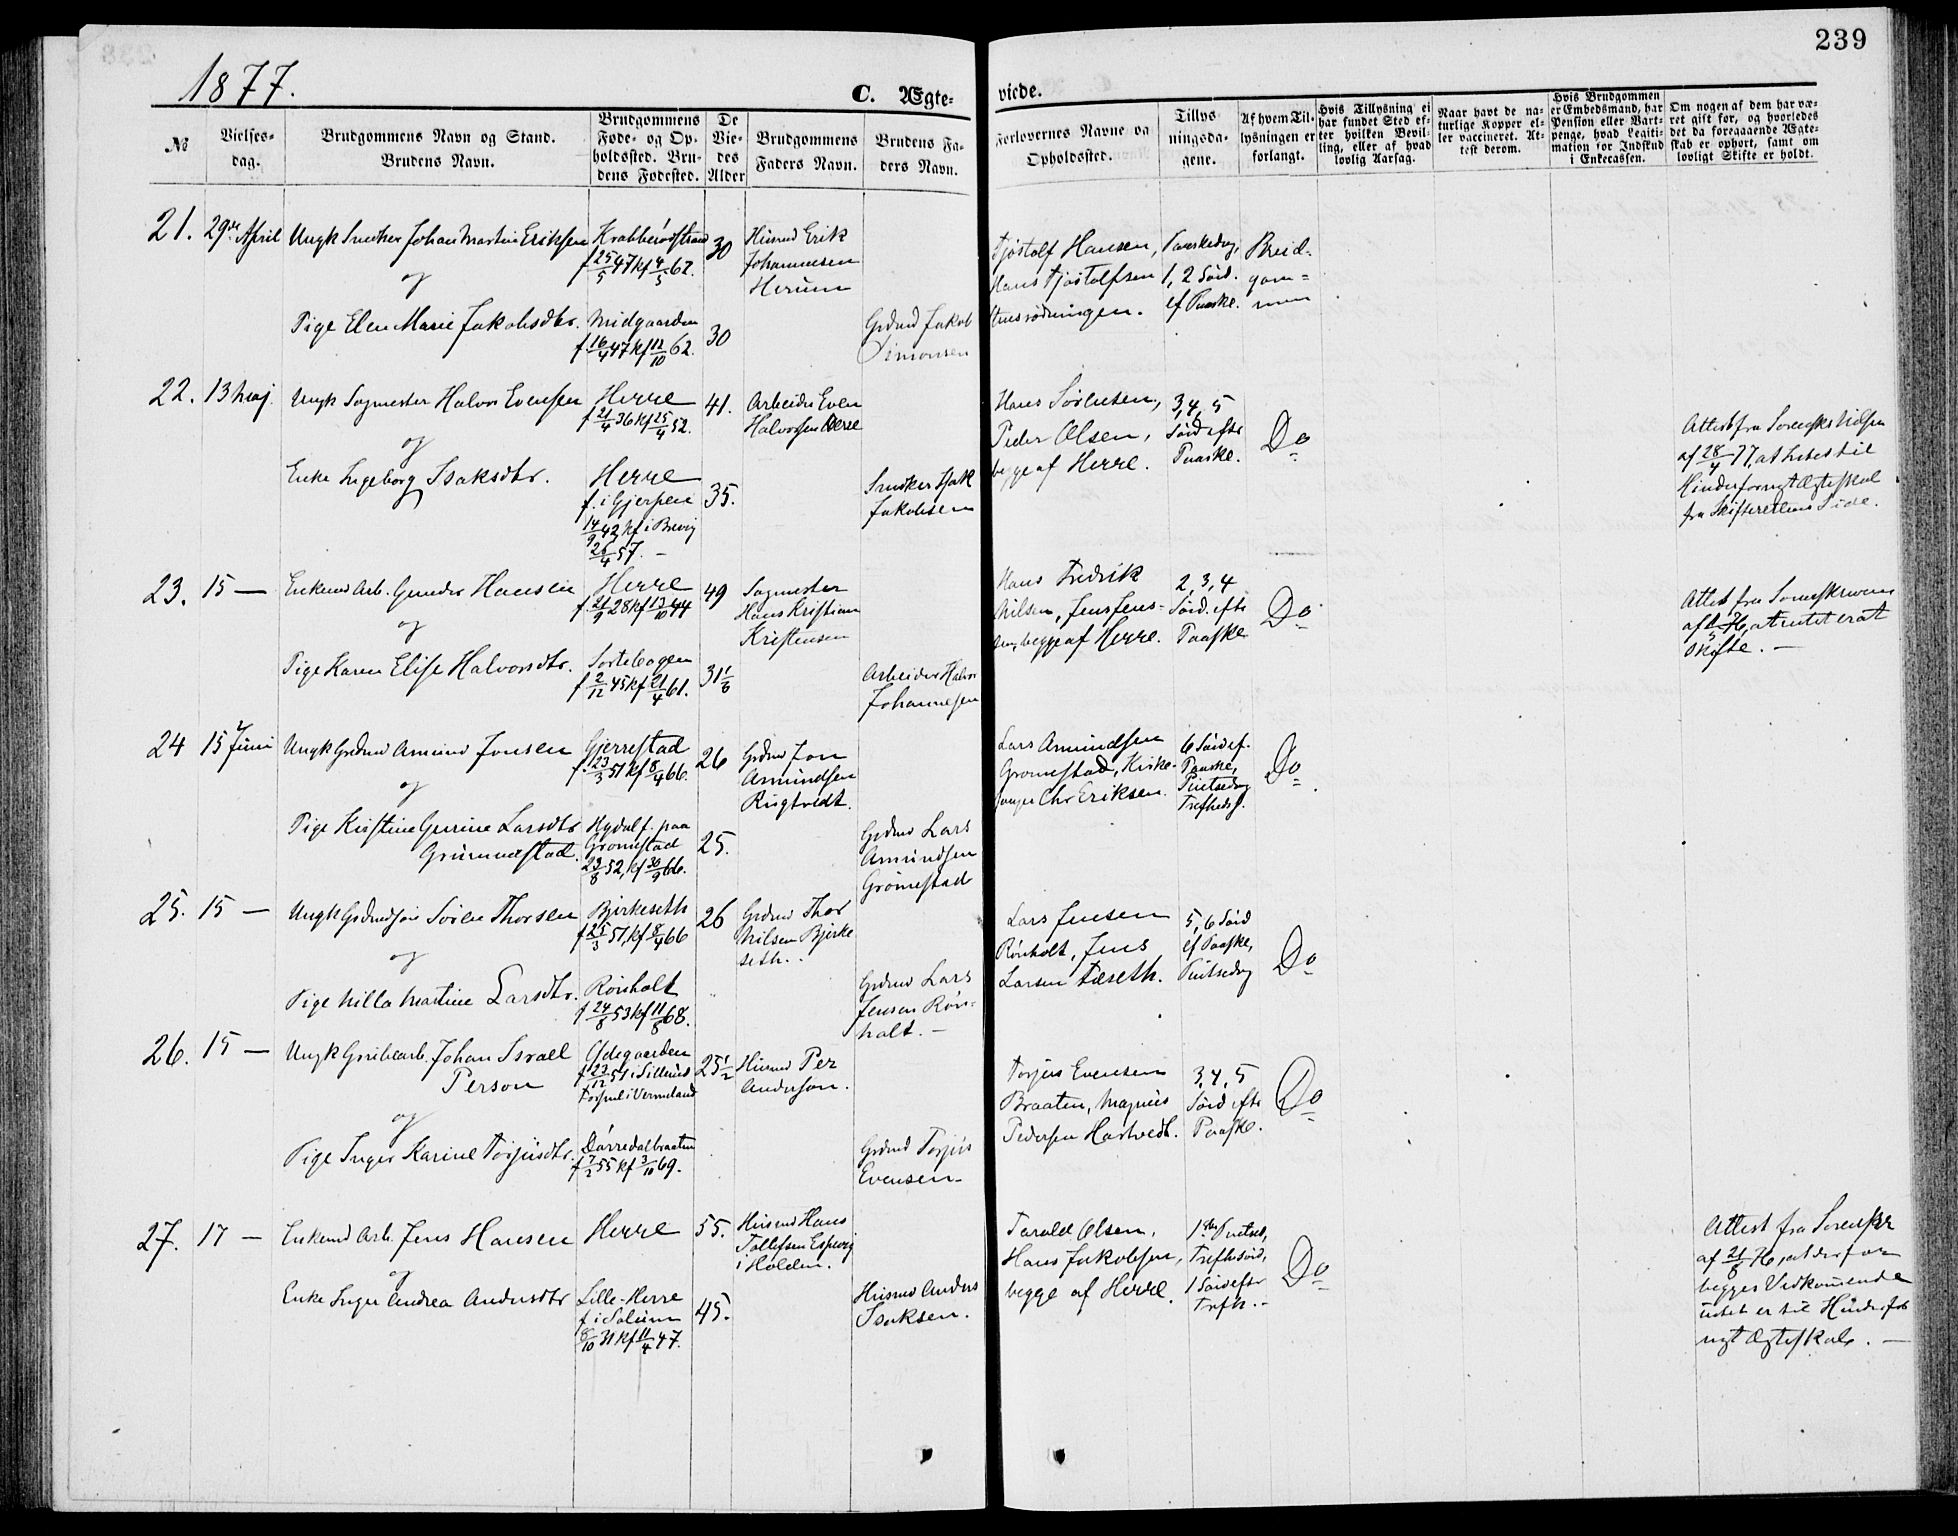 239
1877.
C. Ægte-
viede.
№
Vielses-
dag.
Brudgommens Navn og Stand.
Brudens Navn.
Brudgommens
Føde- og Op-
holdssted. Bru-
dens Fødested.
De
Vie-
des
Alder
Brudgommens
Faders Navn.
Brudens Fa-
ders Navn.
Forlovernes Navne og
Opholdssted.
Tillys-
ningsda-
gene.
Af hvem Til-
lysningen er
forlangt.
Hvis Tillysning ei
har fundet Sted ef-
ter hvilken Bevil-
ling, eller af hvad
lovlig Aarsag.
Naar havt de na-
turlige Kopper el-
ler vaccineret. At-
test derom.
Hvis Brudgommen
er Embedsmand, har
Pension eller Vart-
penge, hvad Legiti-
mation for Indskud
i Enkecassen.
Om nogen af dem har væ-
ret gift før, og hvorledes
det da foregaaende Ægte-
skab er ophørt, samt om
lovligt Skifte er holdt.
21. 29de April
Ungk Snedker Johan Martin Eriksen
og
Pige Elen Marie Jakobsdtr.
Krabberødstrand
f 25/5 47 kf 4/5 62.
Midgaarden
f. 16/4 47 kf 12/10 62.
30
30
Husmd Erik
Johannesen
Herum
Grdmd Jakob
Simonsen
Tjøstolf Hansen,
Hans Tjøstolfsen
Paaskedag,
1, 2 Sönd.
ef Paaske.
Brud-
gom-
men
22. 13 Maj
Ungk Sagmester Halvor Evensen
og
Enke Ingeborg Isaksdtr.
Herre
f 21/4 36 kf 25/4 52.
Herre
f. i Gjerpen
14/9 42, kf i Brevig
26/4 57. –
41.
35.
Arbeider Even
Halvorsen Herre
Snedker Isak
Jakobsen
Hans Sørensen,
Peder Olsen,
begge af Herre.
3, 4, 5
Sönd efter
Paaske.
Do
Attest fra Sorenskr Nilsen
af 28/4 77, at Intet til
Hinder for nyt Ægteskab
fra Skifterettens Side.
23. 15 –
Enkemd Arb. Gunder Hansen
og
Pige Karen Elise Halvorsdtr.
Herre
f. 21/9 28 kf 13/10 44
f 2/12 45 kf 21/4 61.
49
31 1/6
Sagmester
Hans Kristian
Kristensen
Arbeider Halvor
Johannesen
Hans Fredrik
Nilsen, Jens Jens-
sen, begge af Herre.
2, 3, 4
Sönd. efter
Paaske
Do
Attest fra Sorenskriveren
at intet er at
skifte. –
24 15 Juni
Ungk Grdmd Amund Jonsen
og
Pige Kirstine Gurine Larsdtr
Grummestad.
Gjerrestad
f. 23/3 51 kf 8/4 66.
Hydal f. paa
Gromstad
23/8 52, kf 30/9 66.
26
25.
Grdmd Jon
Amundsen
Rugtvedt.
Grdmd Lars
Amundsen
Grömestad
Lars Amundsen
Gromestad, Kirke-
sanger Chr Eriksen.
6 Sönd ef.
Paaske,
Pintsedag
Trefheds.
Do
25. 15 –
Ungk Grdmdsøn Sören Thorsen
og
Pige Nilla Martine Larsdtr.
Bjerkeseth
f 25/3 51, kf 8/4 66
Rönholt
f 24/8 53 kf 11/8 68.
26
Grdmd Thor
Nilsen Bjerke
seth.
Grdmd Lars
Jensen Rön-
holt. –
Lars Jensen
Rönholt, Jens
Larsen Aaseth.
5, 6 Sönd
ef Paaske,
Pintsedag
Do
26. 15 –
Ungk Grubearb. Johan Israel
Person
og
Pige Inger Karine Torjusdtr.
Ødegaarden
f 23/12 51 i Sillerud
i Vermeland
Dörredalbraaten
f 7/2 55 kf 3/10 69.
25 1/2
Husmd Per
Anderson.
Grdmd Torjus
Evensen –
Torjus Evensen
Braaten, Magnus
Pedersen Hastvedt.
3, 4, 5
Sönd efter
Paaske.
Do
27. 17 –
Enkemd Arb. Jens Hansen
og
Enke Inger Andrea Andersdtr
Herre
Lille-Herre
f i Solum
8/10 31 kf 11/4 47.
55.
45.
Husmd Hans
Tollefsen Espevig
i Holden.
Husmd Anders
Isaksen.
Tarald Olsen,
Hans Jakobsen,
begge af Herre.
1ste Pintsed,
Trefhsönd,
1 Sönd efter
Trefh. –
Do
Attest fra Sorenskr
af 21/8 76, at der for
begges Vedkommende
intet er til Hinder for
nyt Ægteskab. –